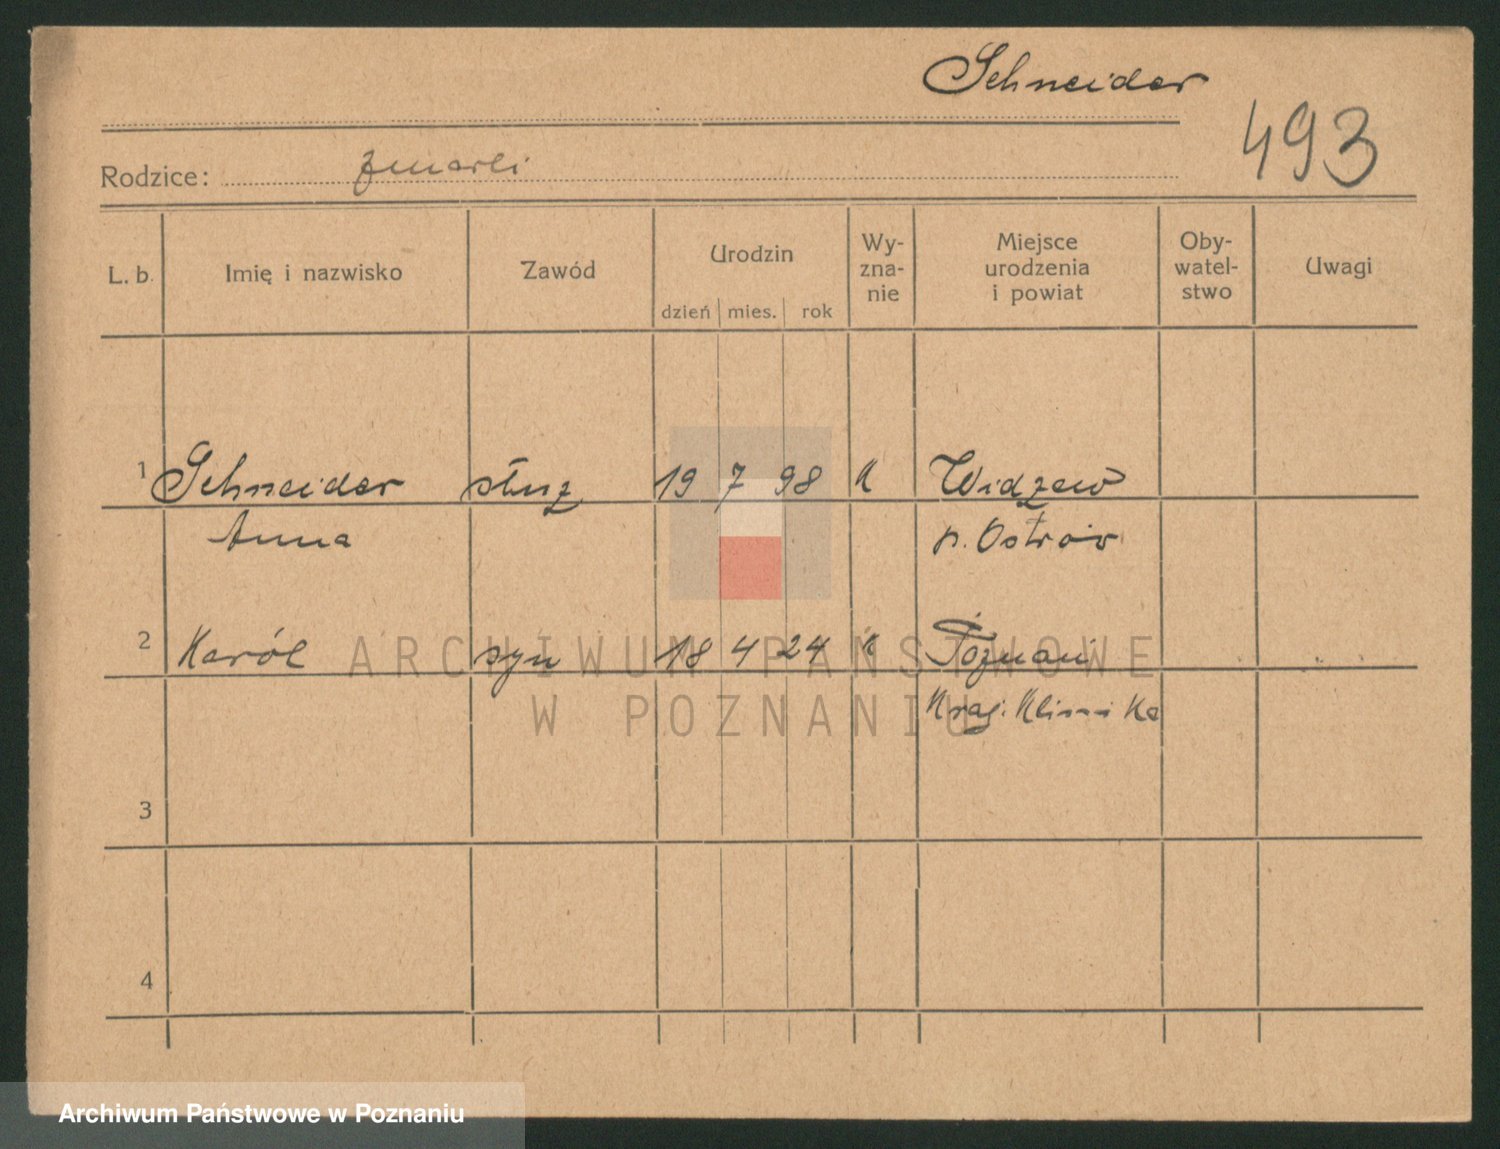 Schneider
493
Rodzice: zmarli
L. b. Imię i nazwisko Zawód Urodzin dzień mies. rok Wy-zna-nie Miejsce urodzenia i powiat Oby-watel-stwo Uwagi
1 Schneider służ 19 7 98 k Widzew
Anna p. Ostrów
2 Karól syn 18 4 24 k Poznań
Kraj. Klinika
3
4
ARCHIWUM PAŃSTWOWE
W POZNANIU
Archiwum Państwowe w Poznaniu